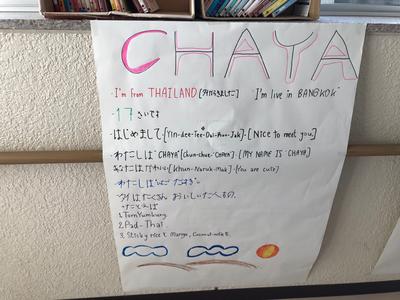 CHAYA
・I'm from THAILAND [タイからきましたこ] I'm live in BANGKOK"
・17 さいです
・はじめまして [Yin-dee-Tee-Dai-Roo-Jak] - [Nice to meet you]
・わたしは "CHAYA" [chun-chue-"CHAYA"] - [MY NAME IS "CHAYA]
あなたはかわいい [khun-Naruk-Mak] - (You are cute)
・わたしは
タイはたくさん おいしいたべもの、
たとえば
1. TomYumkung
2. Pad-Thai
3. Sticky rice & Mango, Coconut-milk